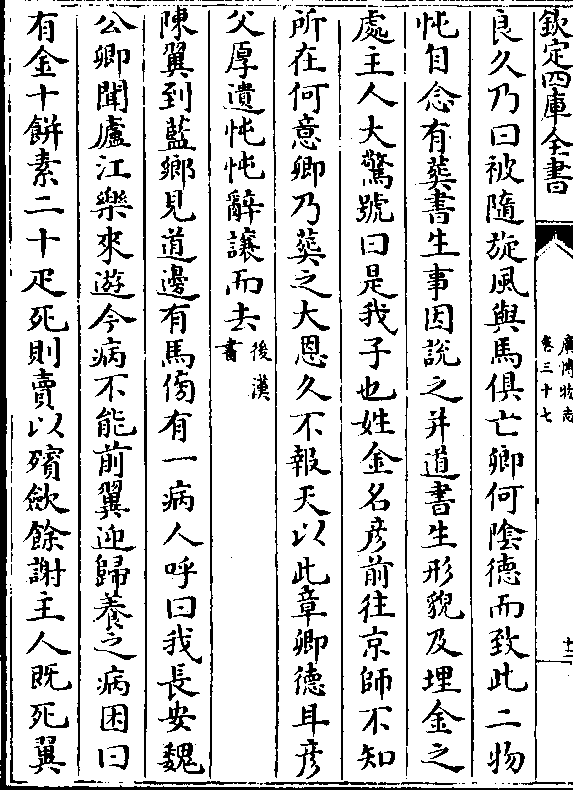 欽定四庫全書
廣博物志
卷三十七
十二
良久乃曰被隨旋風與馬俱亡卿何陰德而致此二物
忳自念有葬書生事因說之并道書生形貌及埋金之
處主人大驚號曰是我子也姓金名彥前往京師不知
所在何意卿乃葬之大恩久不報天以此章卿德耳彥
父厚遺忳忳辭讓而去後漢書
陳翼到藍鄉見道邊有馬傍有一病人呼曰我長安魏
公卿聞廬江樂來遊今病不能前翼迎歸養之病困曰
有金十餅素二十疋死則賣以殯歛餘謝主人既死翼